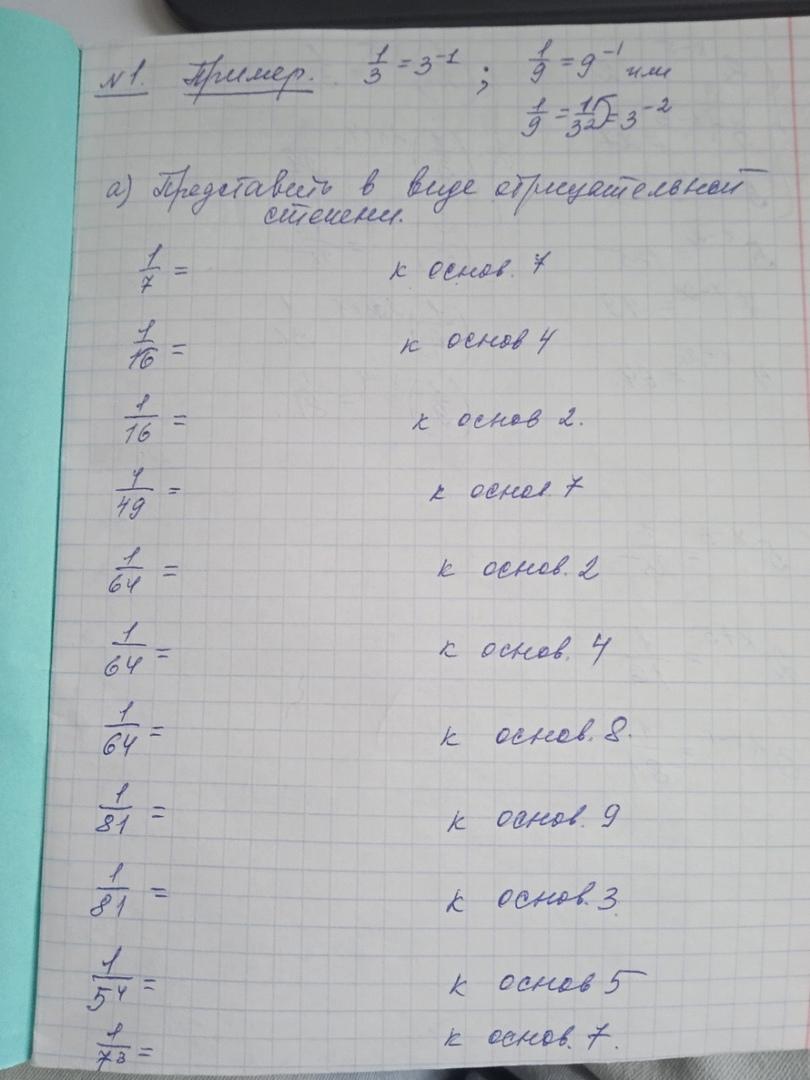 №1. Пример. 1/3 = 3⁻¹ ; 1/9 = 9⁻¹ или
1/9 = 1/3² = 3⁻²
а) Представить в виде отрицательной
степени.
1/7 = к основ. 7
1/16 = к основ 4
1/16 = к основ 2.
1/49 = к основ. 7
1/64 = к основ. 2
1/64 = к основ. 4
1/64 = к основ. 8.
1/81 = к основ. 9
1/81 = к основ. 3
1/5⁴ = к основ 5
1/7³ = к основ. 7.